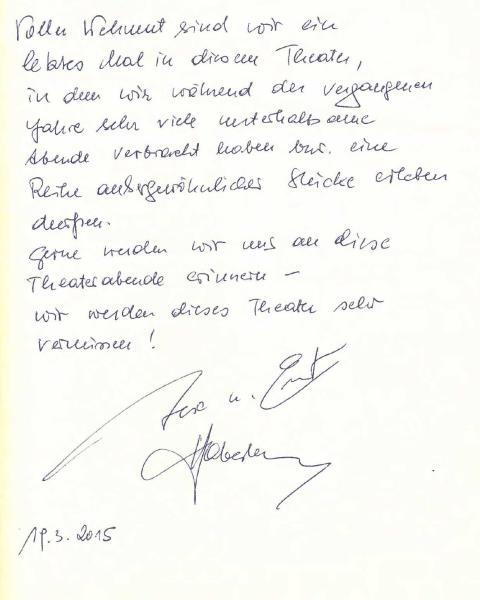 Voller Wehmut sind wir ein
letztes Mal in diesem Theater,
in dem wir während der vergangenen
Jahre sehr viele unterhaltsame
Abende verbracht haben bzw. eine
Reihe außergewöhnlicher Stücke erleben
durften.
Gerne werden wir uns an diese
Theaterabende erinnern –
wir werden dieses Theater sehr
vermissen!
u. Ernst
19.3.2015